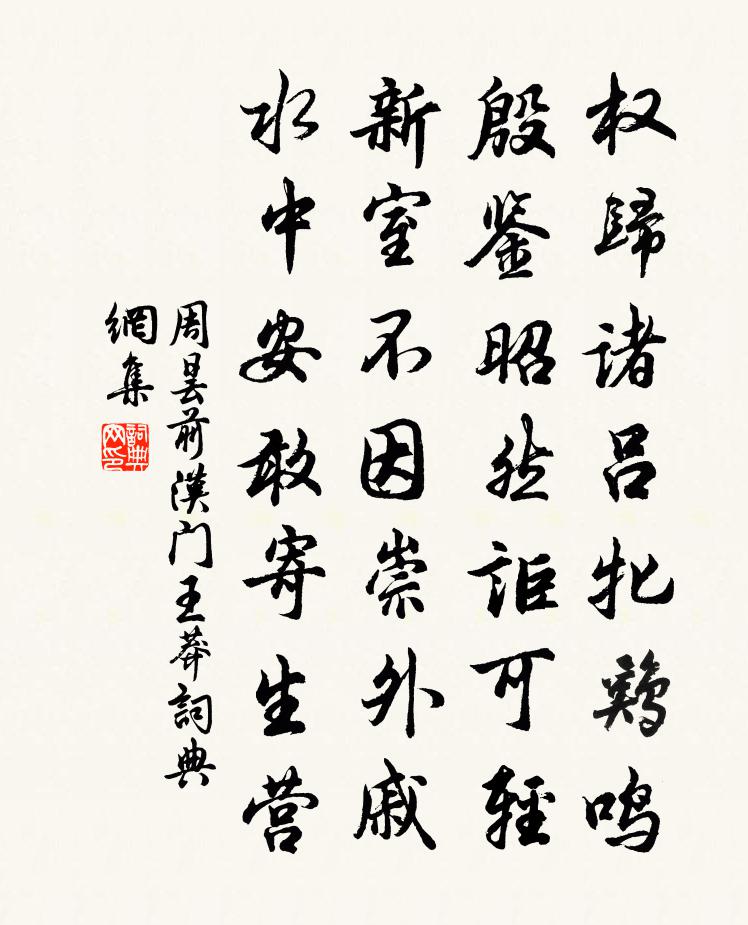 权歸诸吕牝鷄鸣
殷鉴昭然詎可輕
新室不因崇外戚
水中安敢寄生营
周昙前漢门王莽詞典
網集
詞典
网印